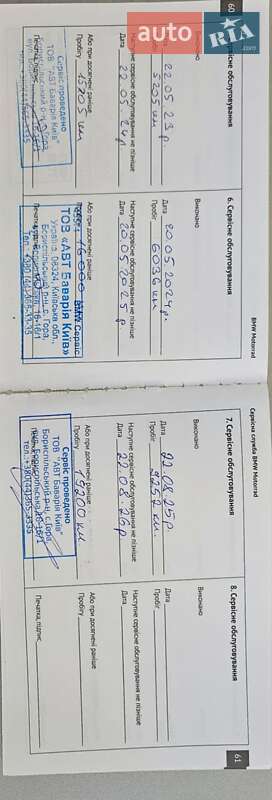 auto RIA.com
60
BMW Motorrad
обслуговування
Виконано
Дата 22.05.23р.
Пробіг 5205 км
Наступне сервісне обслуговування не пізніше
Дата 22.05.24р
Або при досягнені раніше
Пробігу 15205 км
Печатка, підпис
Сервіс проведено
ТОВ "АВТ Баварія Київ"
Бориспільський р-н, с.Гора
6. Сервісне обслуговування
Виконано
Дата 20.05.2024р.
Пробіг 6036 км
Наступне сервісне обслуговування не пізніше
Дата 20.05.2025 р.
Або при досягнені раніше
16 000 км
BMW Сервіс
ТОВ «АВТ Баварія Київ»
Україна, 08324, Київська обл.,
Бориспільський р-н, с. Гора,
Сервісна служба BMW Motorrad
61
7. Сервісне обслуговування
Виконано
Дата 22.08.25р.
Пробіг 9252 км
Наступне сервісне обслуговування не пізніше
Дата 22.08.26р
Або при досягнені раніше
Пробігу 19200 км
Сервіс проведено
ТОВ "АВТ Баварія Київ"
Бориспільський р-н, с.Гора
8. Сервісне обслуговування
Виконано
Дата
Пробіг
Наступне сервісне обслуговування не пізніше
Дата
Або при досягнені раніше
Пробігу
Печатка, підпис